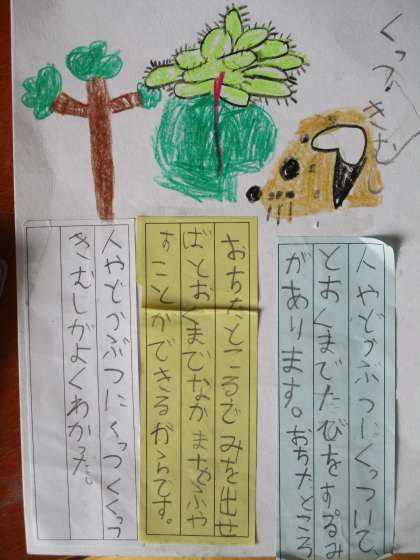 くっつ
きむし
人やどうぶつにくっついて
とおくまでたびをするみ
があります。おちたところ
おちたところでみを出せ
ばとおくまでなかまをふや
すことができるからです。
人やどうぶつにくっつくくっつ
きむしがよくわかった。